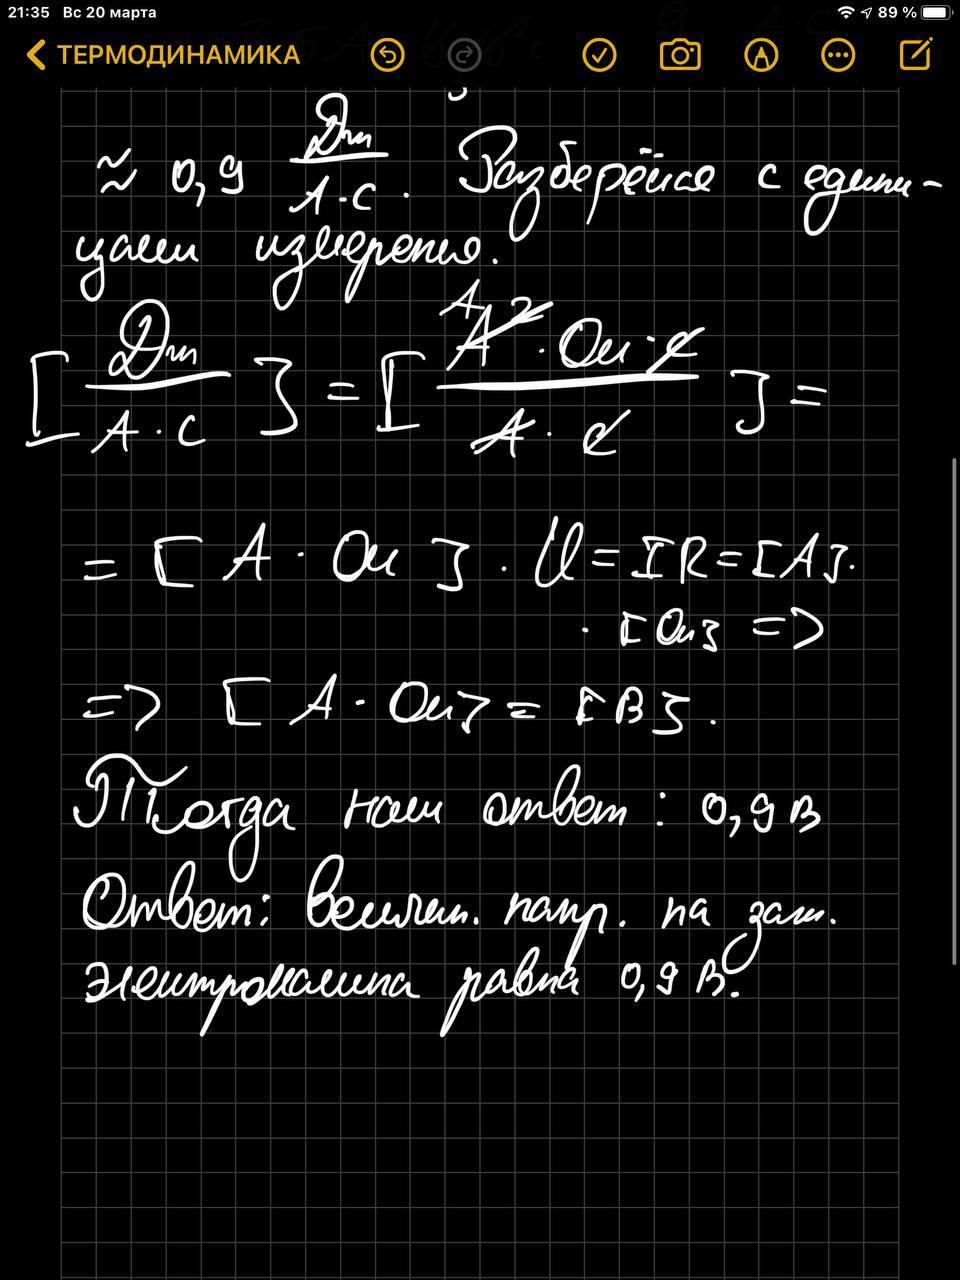 21:35 Вс 20 марта 89 %
ТЕРМОДИНАМИКА
≈ 0,9 Дж/А·с. Разберёмся с едини-
цами измерения.
[Дж/А·с] = [А² А·Ом·с/А·с] =
= [А·Ом]. U = IR = [А]·
·[Ом] =>
=> [А·Ом] = [В].
Тогда наш ответ: 0,9 В
Ответ: величин. напр. на заж.
электрокамина равна 0,9 В.